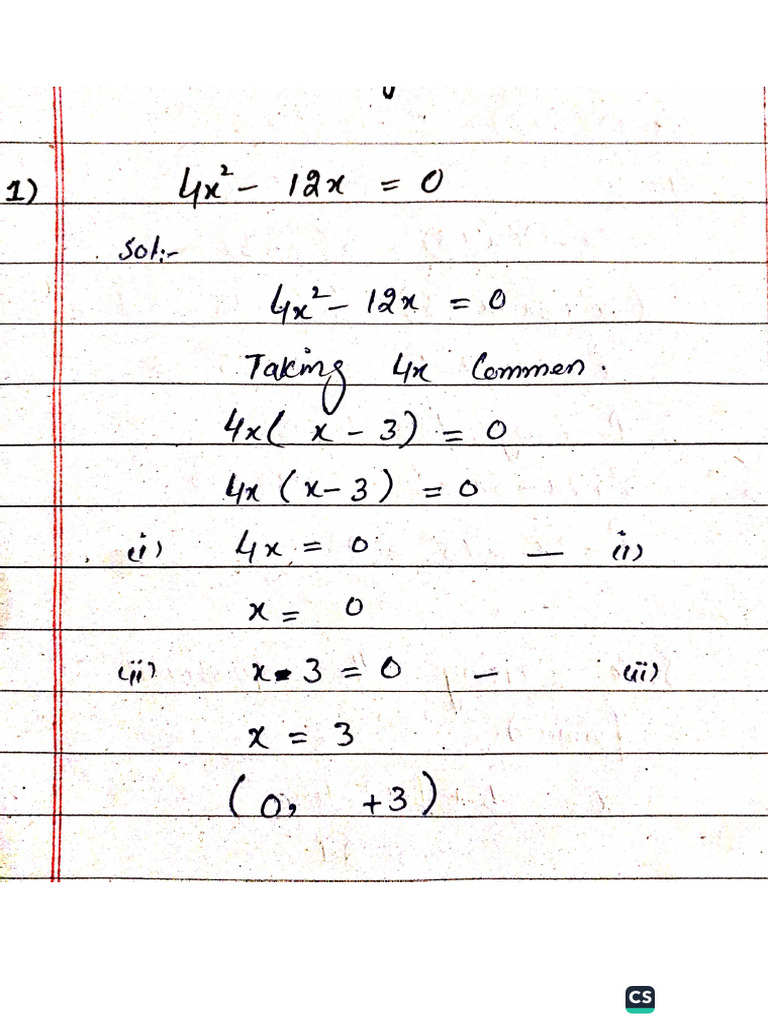 1) 4x² - 12x = 0
Sol:-
4x² - 12x = 0
Taking 4x Commen.
4x( x - 3) = 0
4x (x - 3) = 0
(i) 4x = 0 — (i)
x = 0
(ii) x - 3 = 0 — (ii)
x = 3
(0, +3)
CS